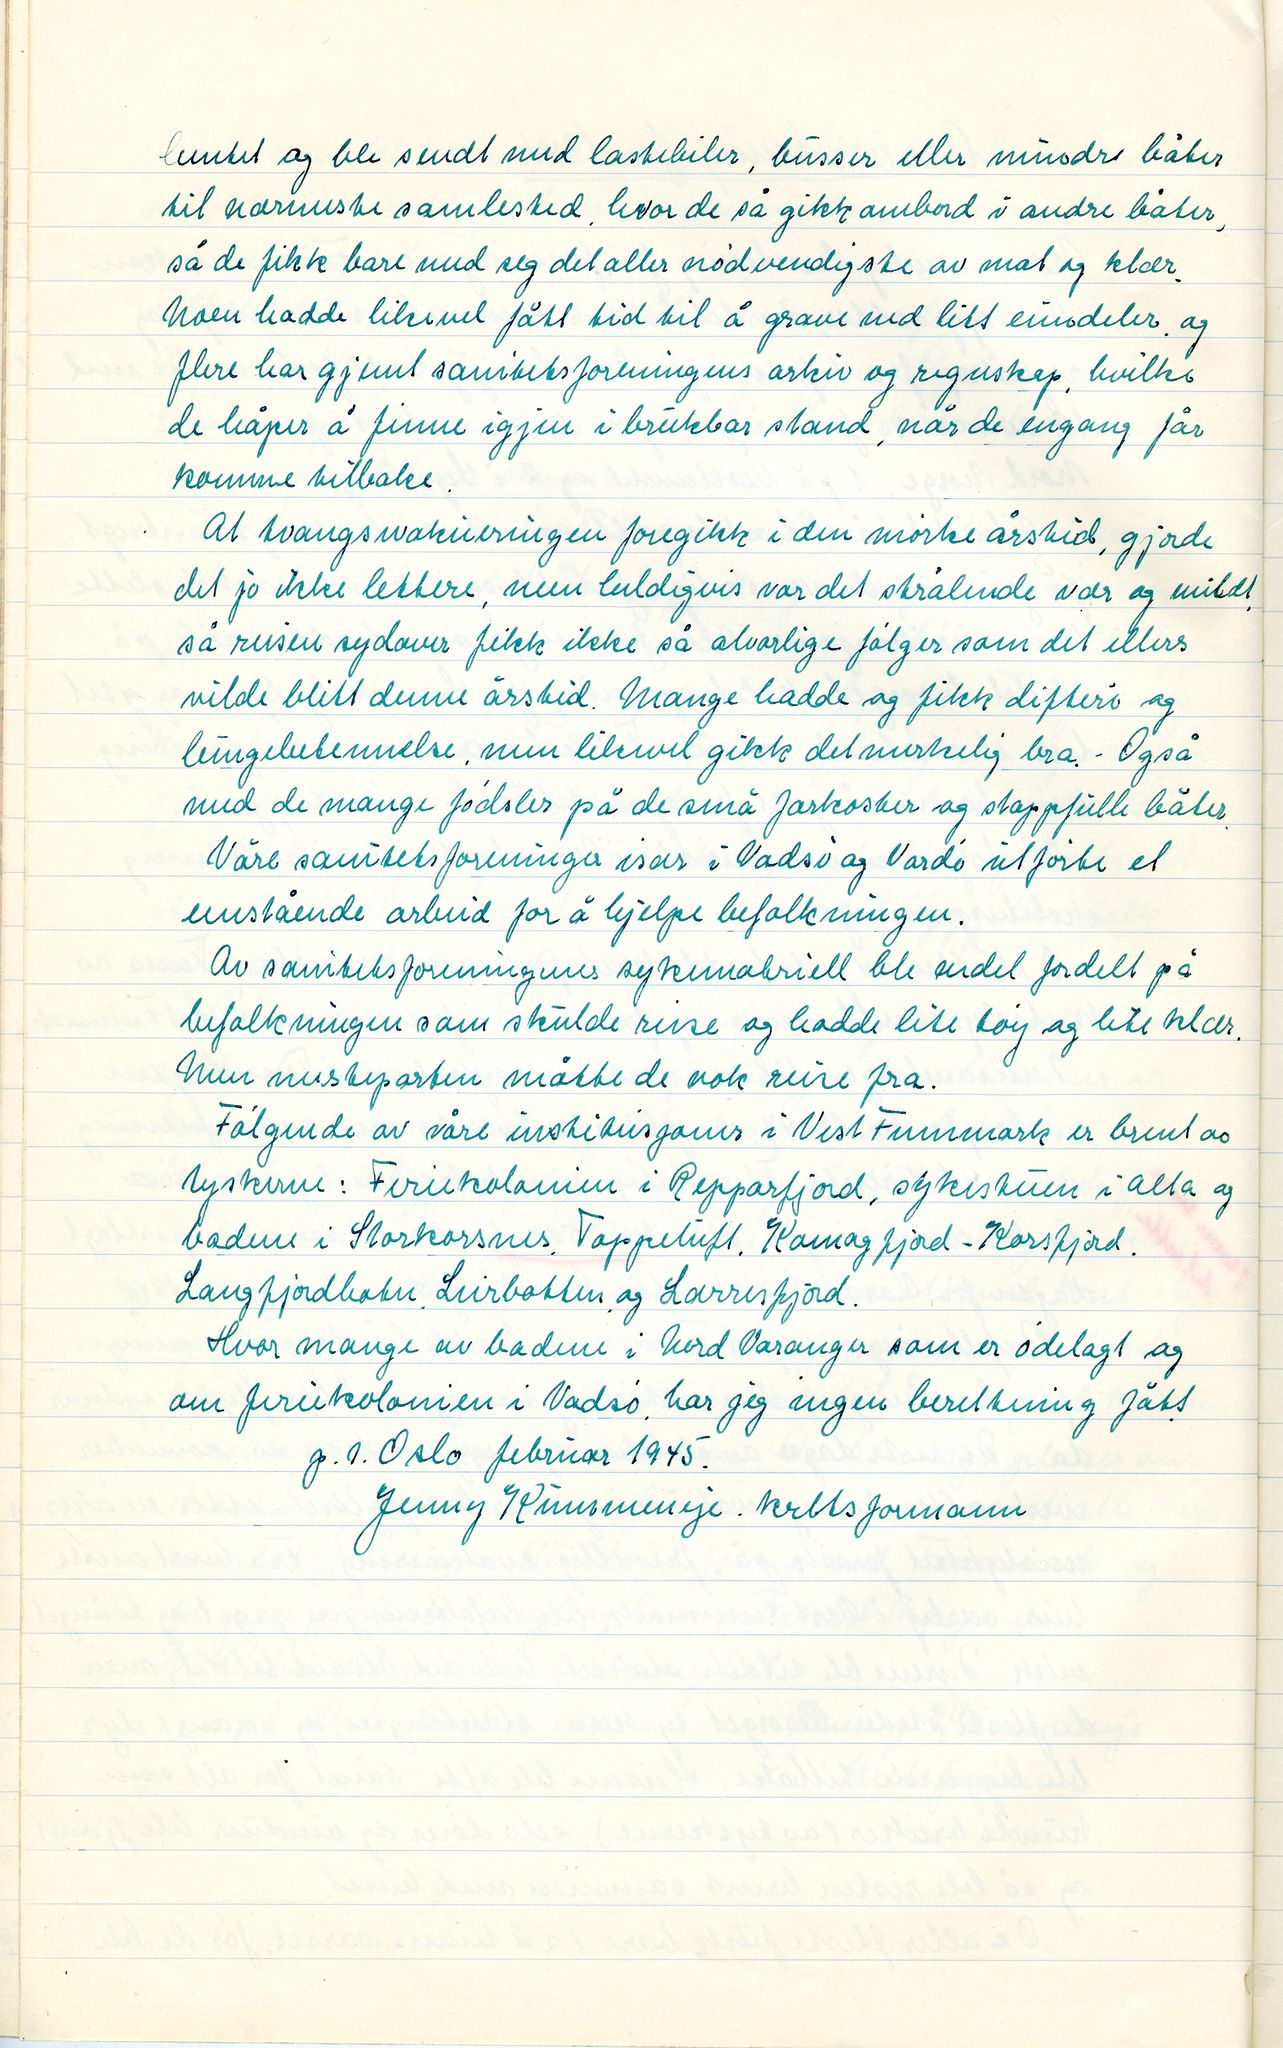 hentet og ble sendt med lastebiler, busser eller mindre båter
til nærmeste samlested, hvor de så gikk ombord i andre båter,
så de fikk bare med seg det aller nødvendigste av mat og klær.
Noen hadde likevel fått tid til å grave ned litt eiendeler, og
flere har gjemt sanitetsforeningens arkiv og regnskap, hvilke
de håper å finne igjen i brukbar stand, når de engang får
komme tilbake.
At tvangsevakueringen foregikk i den mørke årstid, gjorde
det jo ikke lettere, men heldigvis var det strålende vær og mildt,
så reisen sydover fikk ikke så alvorlige følger som det ellers
vilde blitt denne årstid. Mange hadde og fikk difteri og
lungebetennelse, men likevel gikk det merkelig bra. - Også
med de mange fødsler på de små farkoster og stappfulle båter.
Våre sanitetsforeninger især i Vadsø og Vardø utførte et
enstående arbeid for å hjelpe befolkningen.
Av sanitetsforeningenes sykematriell ble endel fordelt på
befolkningen som skulde reise og hadde lite tøy og lite klær.
Men mesteparten måtte de nok reise fra.
Følgende av våre institusjoner i Vest Finnmark er brent av
tyskerne: Feriekolonien i Repparfjord, sykestuen i Alta og
badene i Storkorsnes, Toppeluft, Komagfjord - Korsfjord.
Langfjordbotn, Leirbotten, og Lerresfjord.
Hvor mange av badene i Nord Varanger som er ødelagt og
om feriekolonien i Vadsø, har jeg ingen beretning fått.
p.t. Oslo februar 1945.
Jenny kretsformann